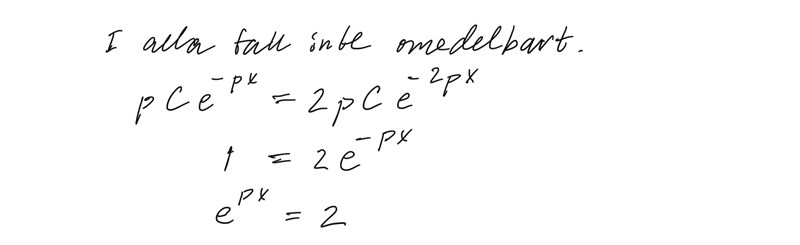 I alla fall inte omedelbart.
pCe^{-px} = 2pCe^{-2px}
1 = 2e^{-px}
e^{px} = 2